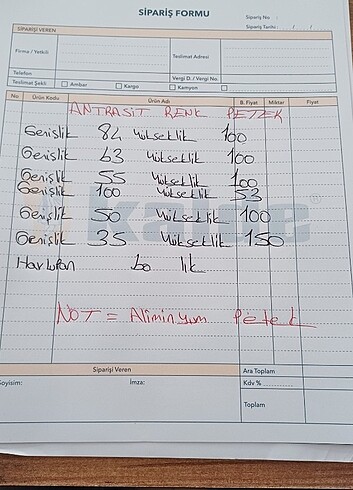 SİPARİŞ FORMU
Sipariş No :
Sipariş Tarihi : / /
SİPARİŞİ VEREN
Firma / Yetkili
Teslimat Adresi
Telefon
Vergi D. / Vergi No.
Teslimat Şekli Ambar Kargo Kamyon
No Ürün Kodu Ürün Adı B. Fiyat Miktar Fiyat
ANTRASİT RENK PETEK
Genişlik 84 Yükseklik 100
Genişlik 63 Yükseklik 100
Genişlik 55 Yükseklik 100
Genişlik 100 Yükseklik 53
Genişlik 50 Yükseklik 100
Genişlik 35 Yükseklik 150
Havlupan 60 lık
NOT = Aliminyum Petek
Siparişi Veren
Ara Toplam
Soyisim: İmza:
Kdv %
Toplam